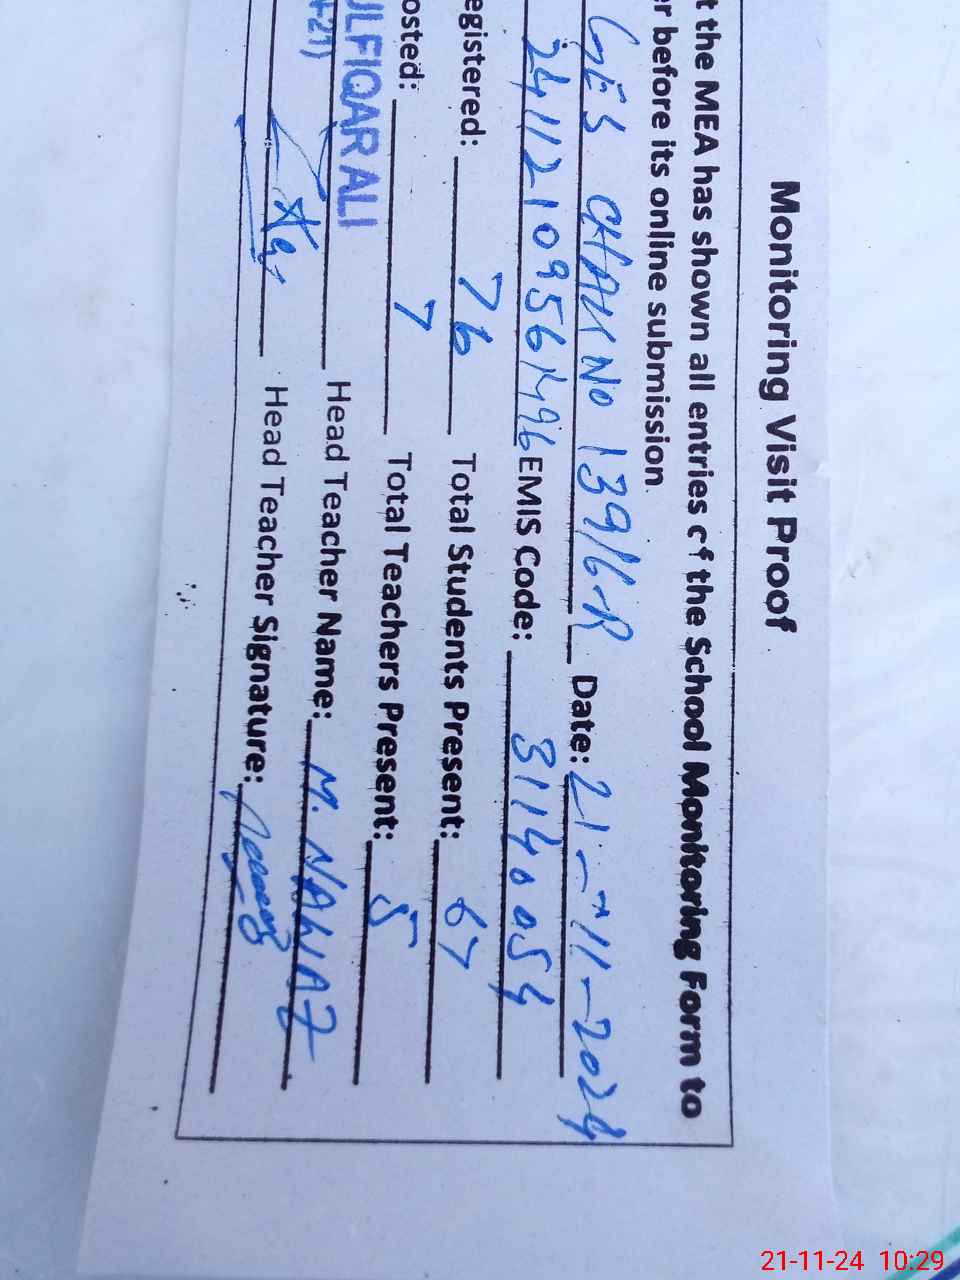 Monitoring Visit Proof
t the MEA has shown all entries of the School Monitoring Form to
er before its online submission
GES CHAK NO 139/6-R Date: 21-11-2024
EMIS Code: 31140054
egistered: 76 Total Students Present: 67
osted: 7 Total Teachers Present: 5
ULFIQAR ALI Head Teacher Name: M. NAWAZ
+21)
Head Teacher Signature:
21-11-24 10:29